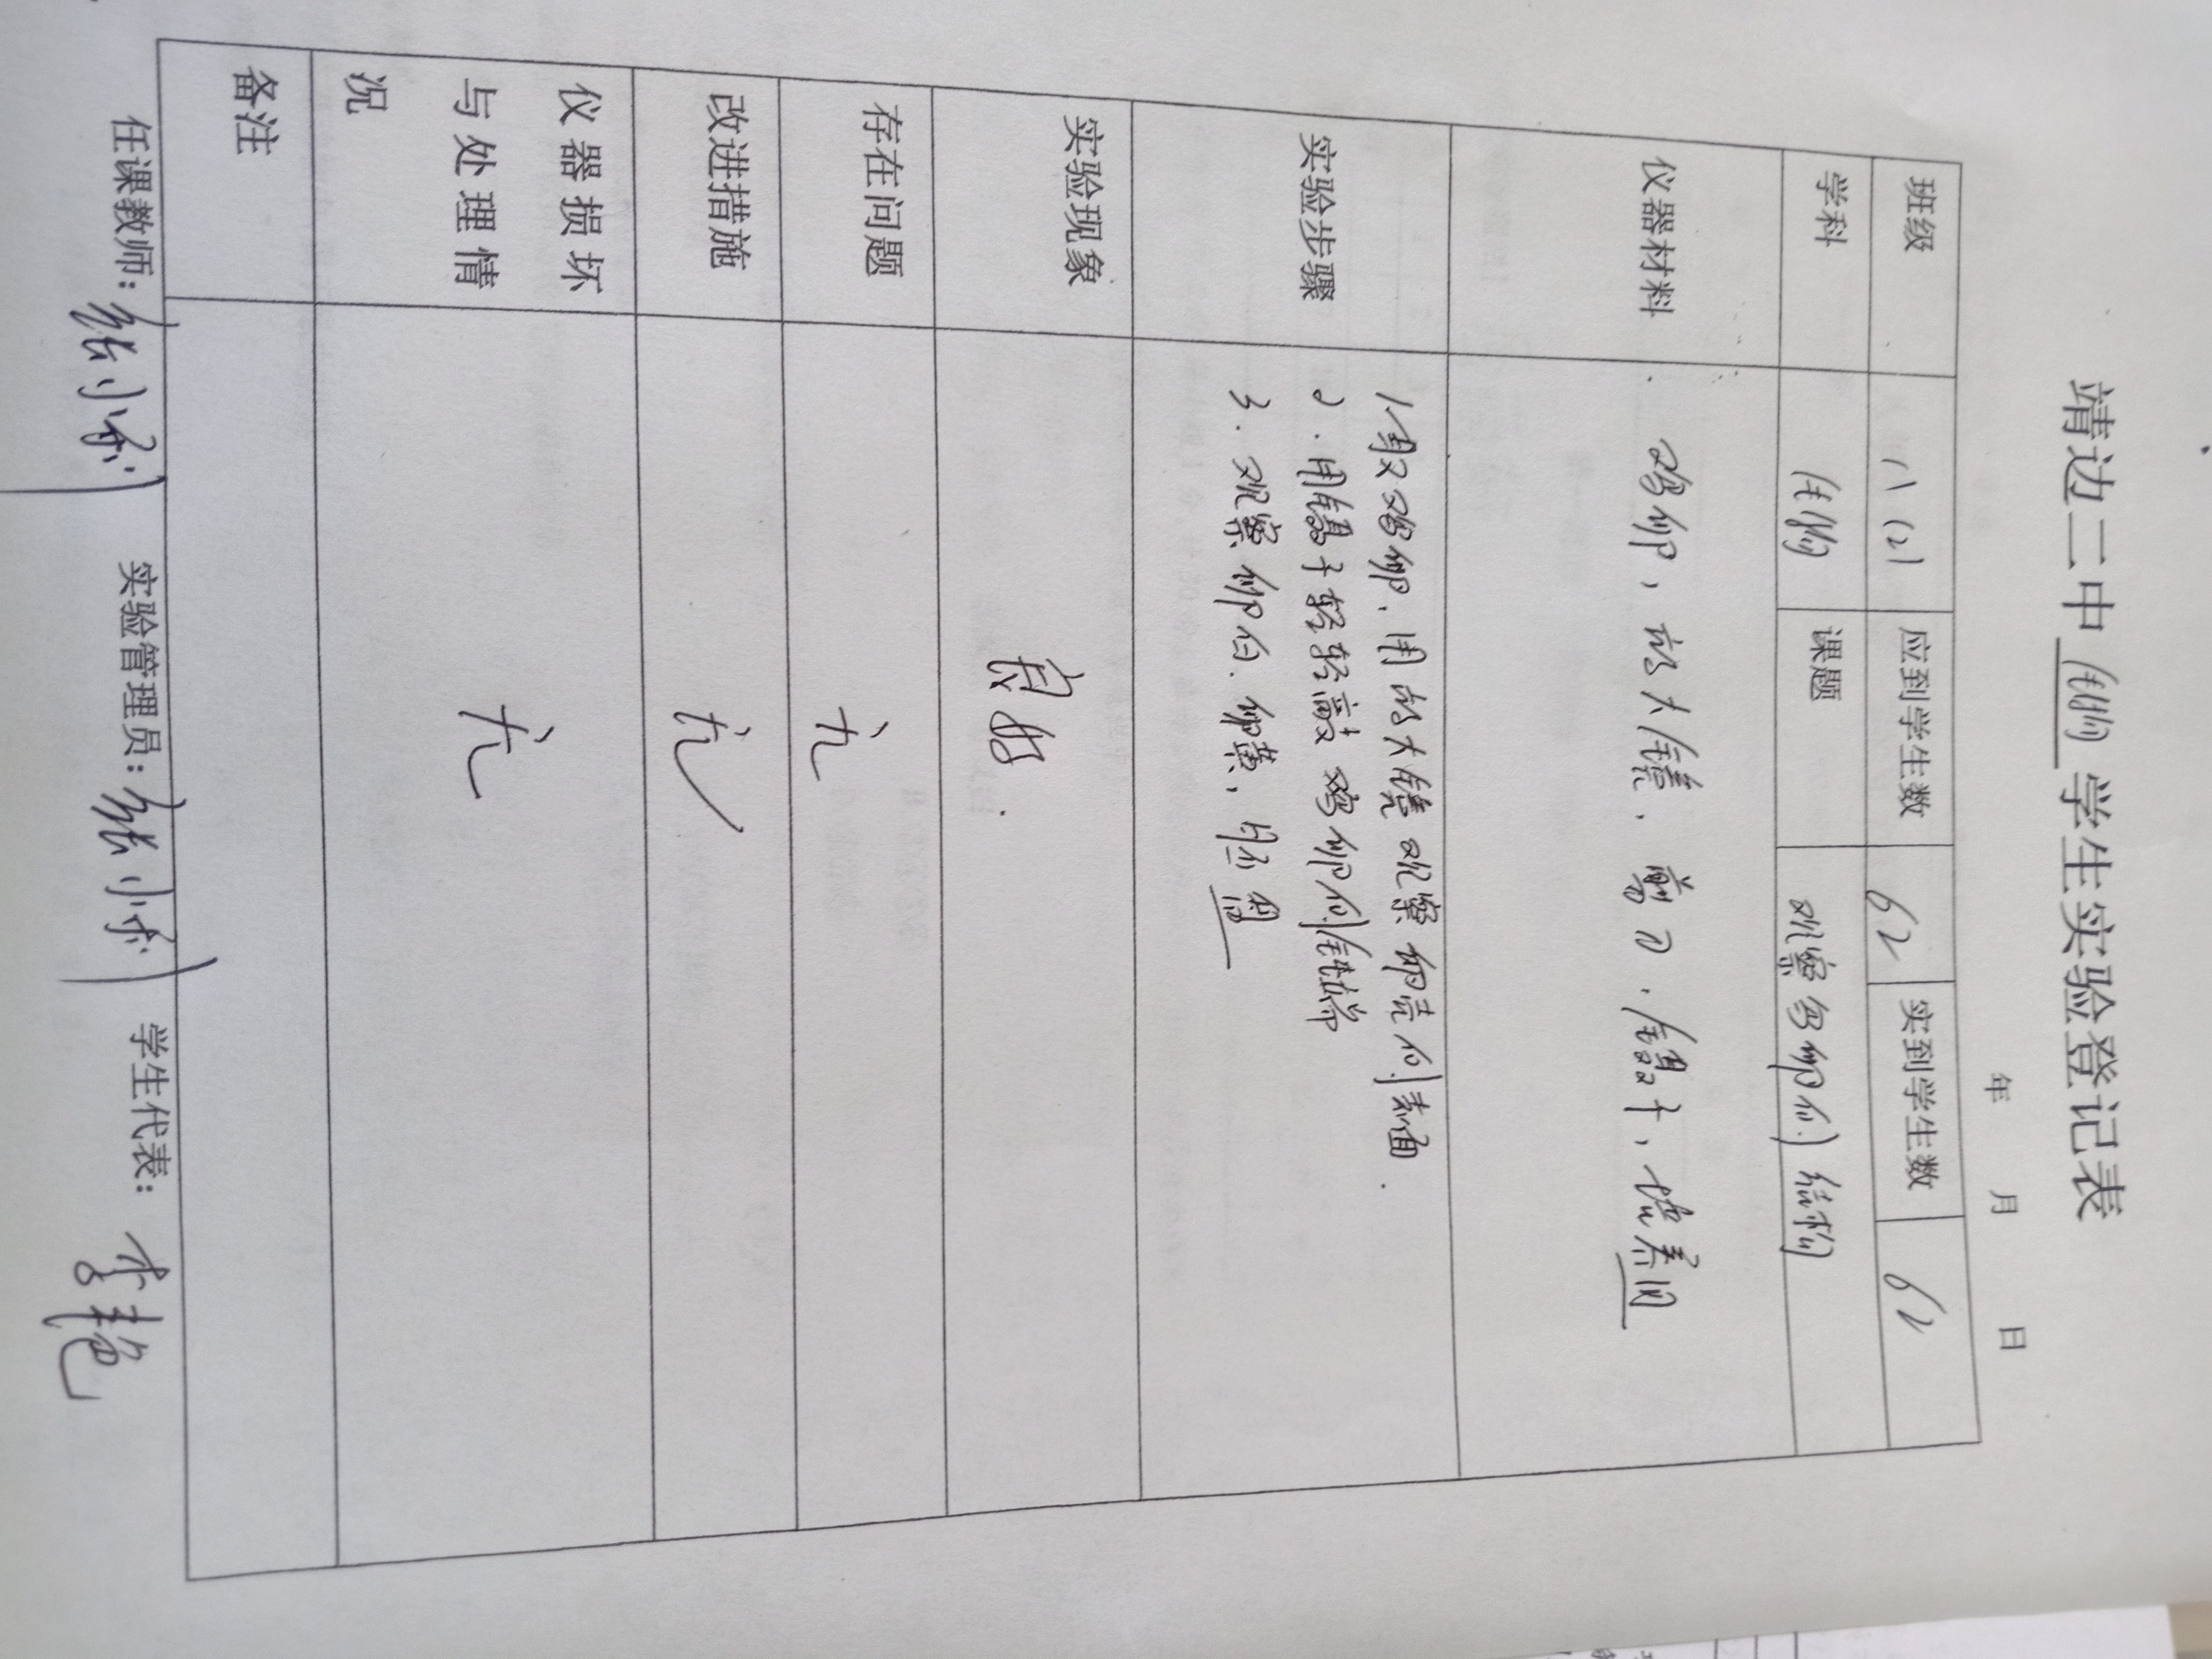 靖边三中生物学生实验登记表
年 月 日
班级 八(2) 应到学生数 62 实到学生数 62
学科 生物 课题 观察鸟卵的结构
仪器材料 鸡卵，放大镜．剪刀．镊子，培养皿
实验步骤
1取鸡卵．用放大镜观察卵壳的表面．
2．用镊子轻轻敲鸡卵的钝端
3．观察卵白．卵黄，胚盘
实验现象 良好．
存在问题 无
改进措施 无
仪器损坏
与处理情
况
无
备注
任课教师：张小 实验管理员：张小 学生代表：李艳